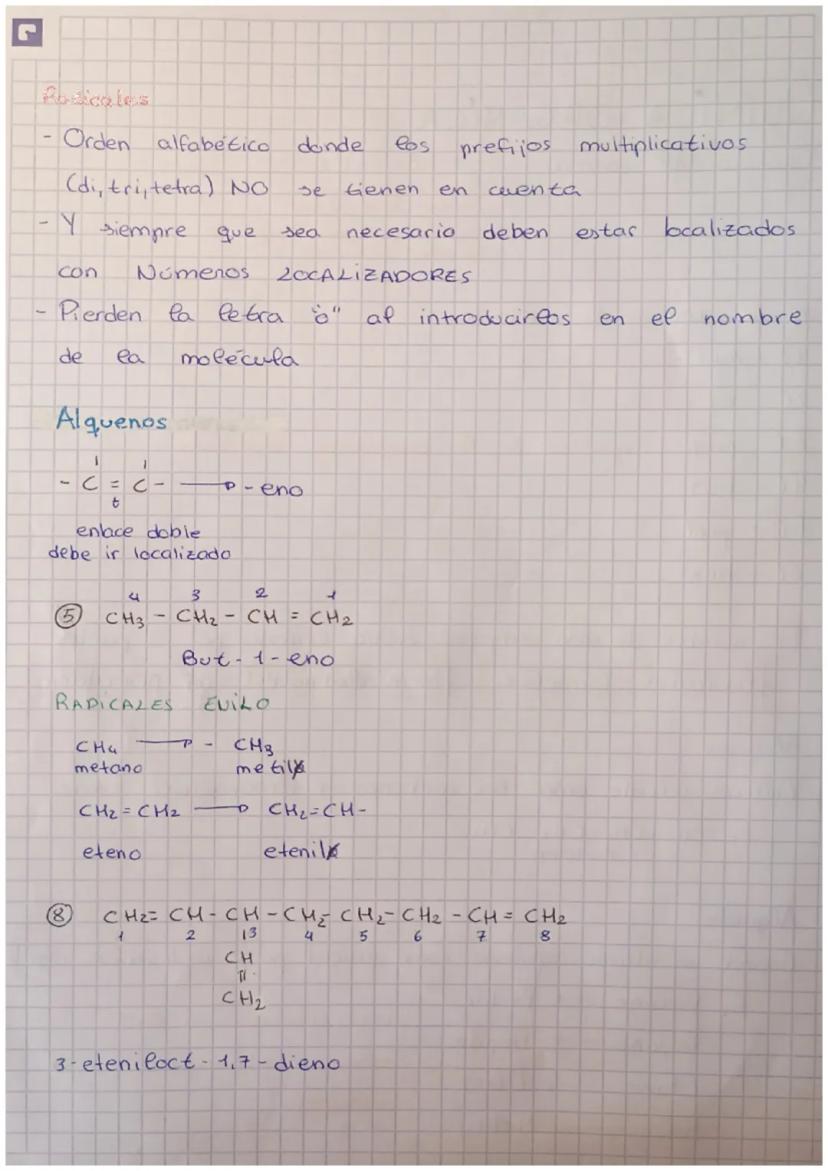 Radicales
- Orden alfabético donde los prefijos multiplicativos
(di, tri, tetra) NO se tienen en cuenta
- Y siempre que sea necesario deben estar localizados
con Números LOCALIZADORES
- Pierden la letra "o" al introducirlos en el nombre
de la molécula
Alquenos
- C = C - → - eno
enlace doble
debe ir localizado
4 3 2 1
⑤ CH3 - CH2 - CH = CH2
But - 1 - eno
RADICALES ENILO
CH4 → - CH3
metano metilo
CH2 = CH2 → CH2 = CH -
eteno etenilo
⑧ CH2 = CH - CH - CH2 - CH2 - CH2 - CH = CH2
1 2 3 4 5 6 7 8
CH
=
CH2
3 - eteniloct - 1,7 - dieno